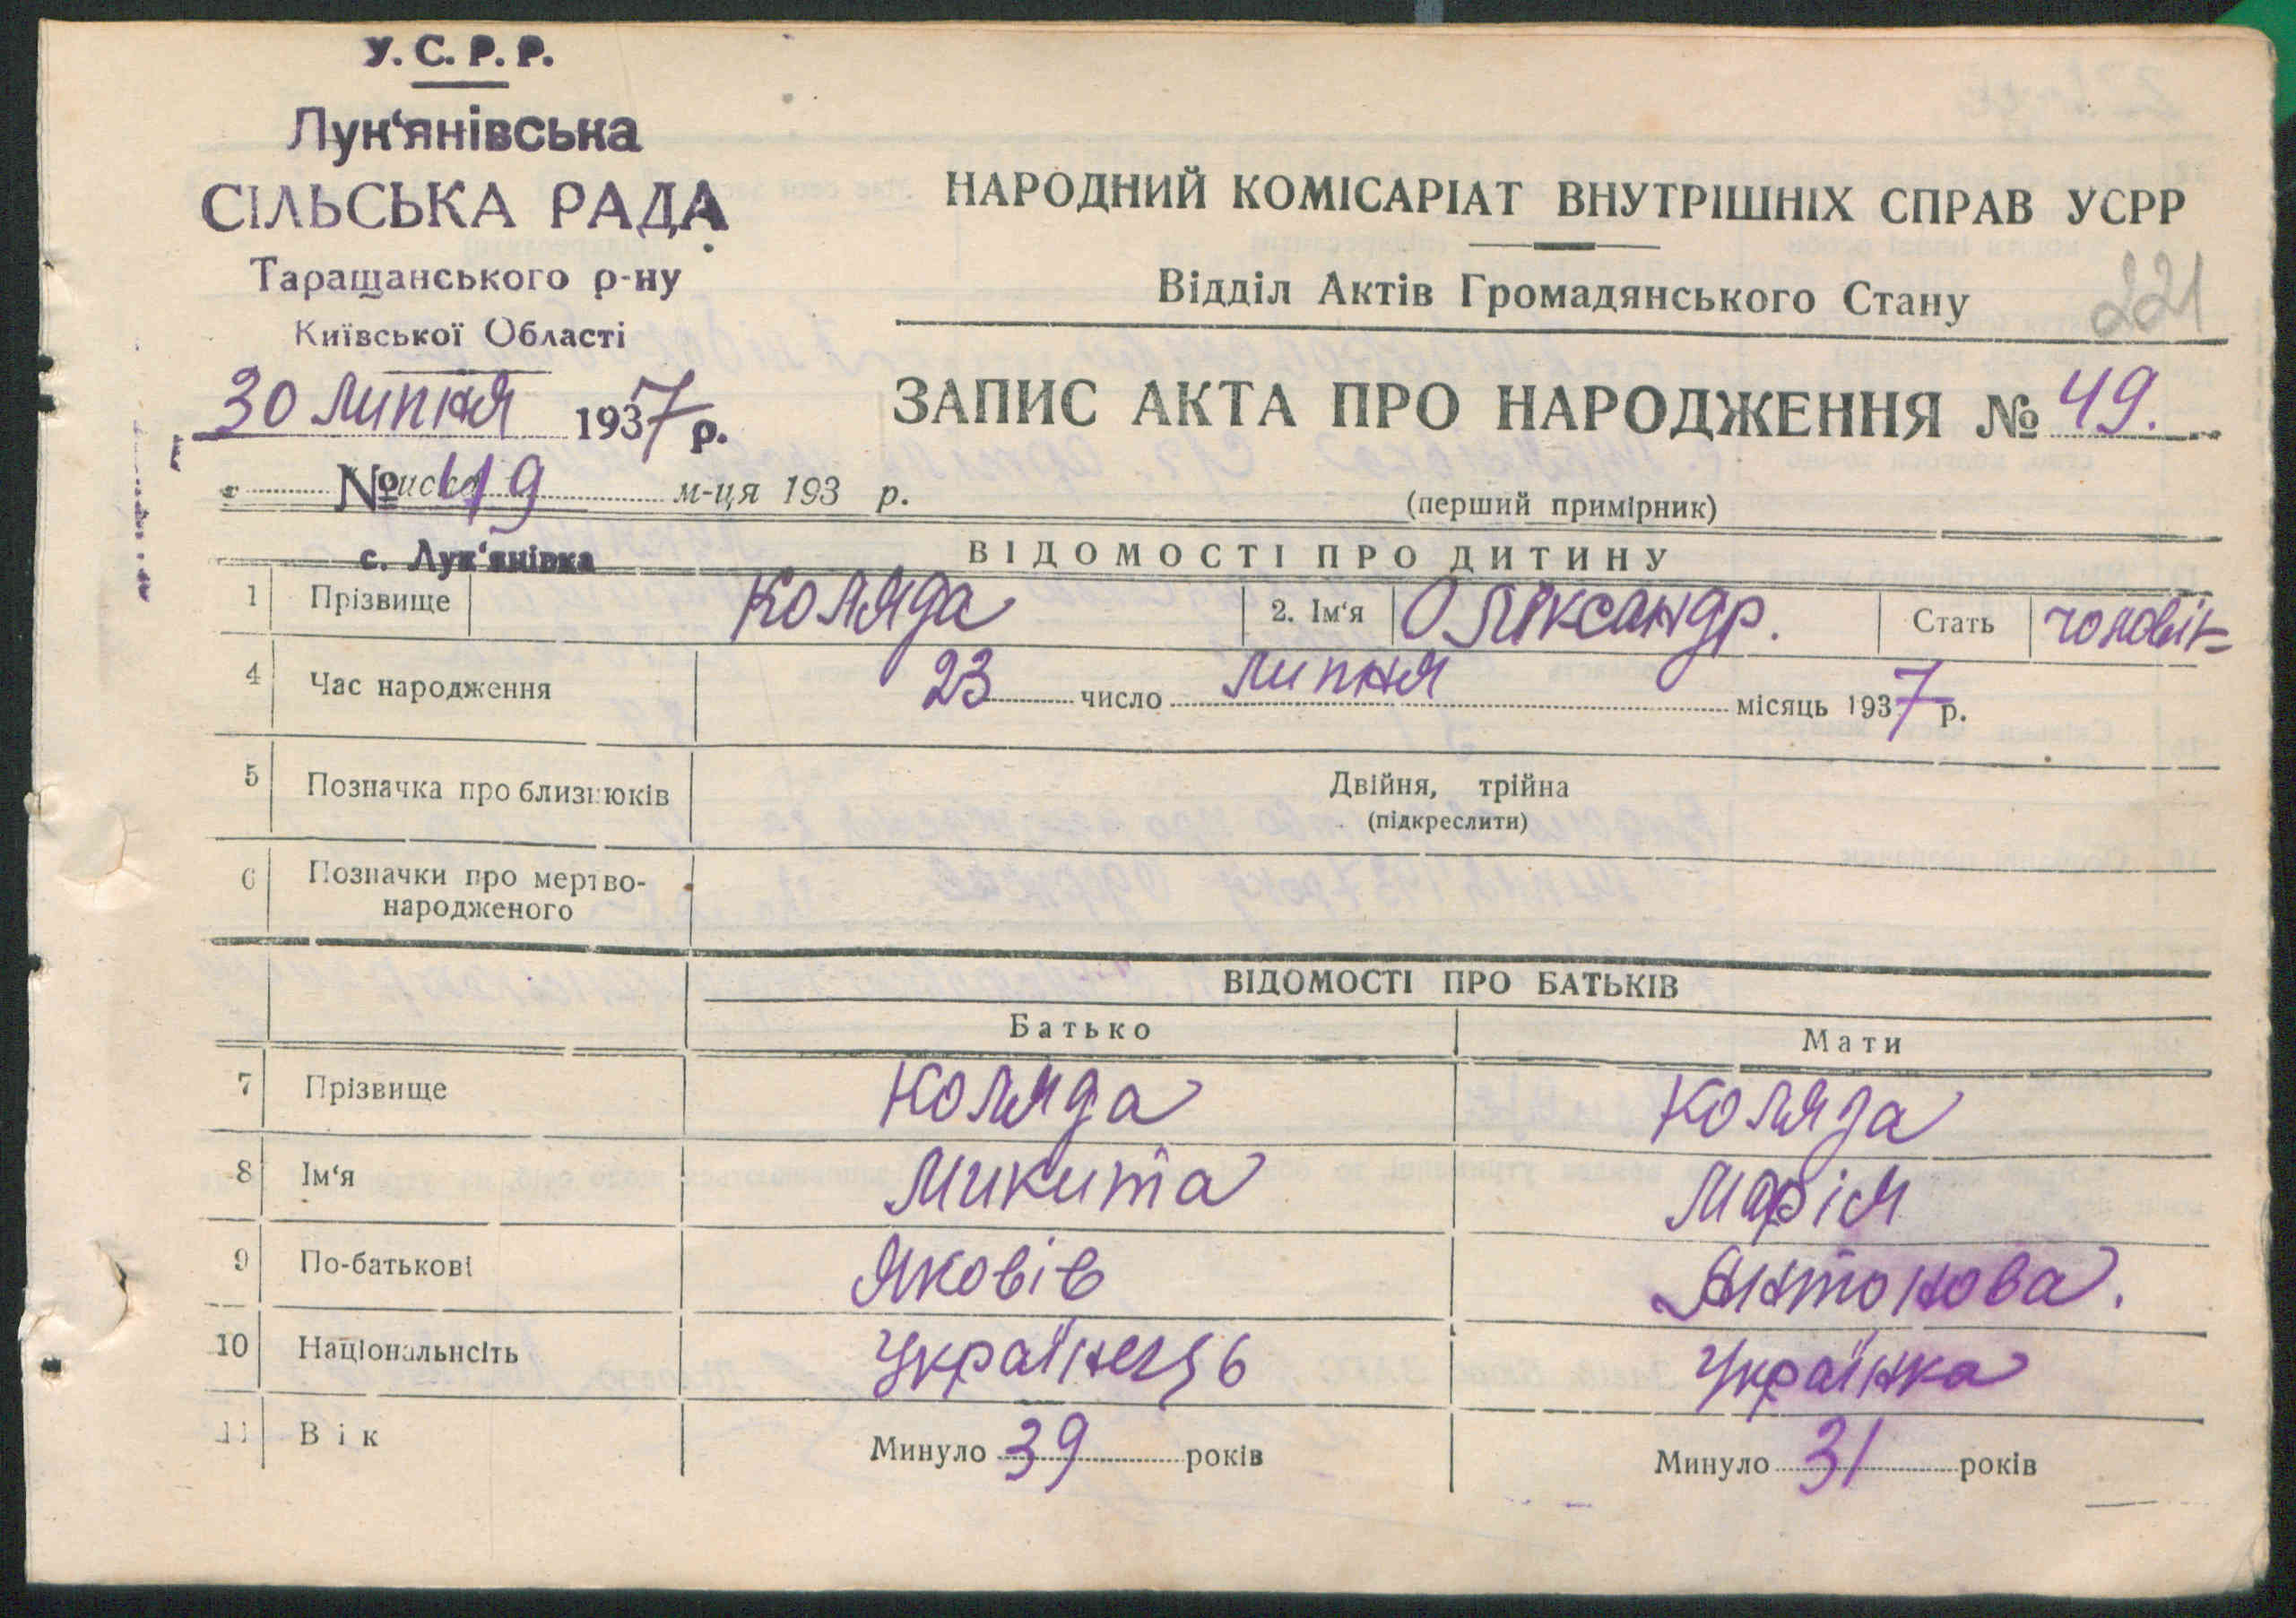 У. С. Р. Р.
Лук'янівська
СІЛЬСЬКА РАДА
Таращанського р-ну
Київської Області
30 липня 1937 р.
№ 49 м-ця 193 р.
с. Лук'янівка
НАРОДНИЙ КОМІСАРІАТ ВНУТРІШНІХ СПРАВ УСРР
Відділ Актів Громадянського Стану
221
ЗАПИС АКТА ПРО НАРОДЖЕННЯ № 49.
(перший примірник)
ВІДОМОСТІ ПРО ДИТИНУ
1 Прізвище Коляда 2. Ім'я Олександр. Стать чоловік=
4 Час народження 23 число липня місяць 1937 р.
5 Позначка про близнюків Двійня, трійна
(підкреслити)
6 Позначки про мертво-
народженого
ВІДОМОСТІ ПРО БАТЬКІВ
Батько Мати
7 Прізвище Коляда Коляда
8 Ім'я Микита Марія
9 По-батькові Яковів Антонова.
10 Національнсіть Українець Українка
11 Вік Минуло 39 років Минуло 31 років